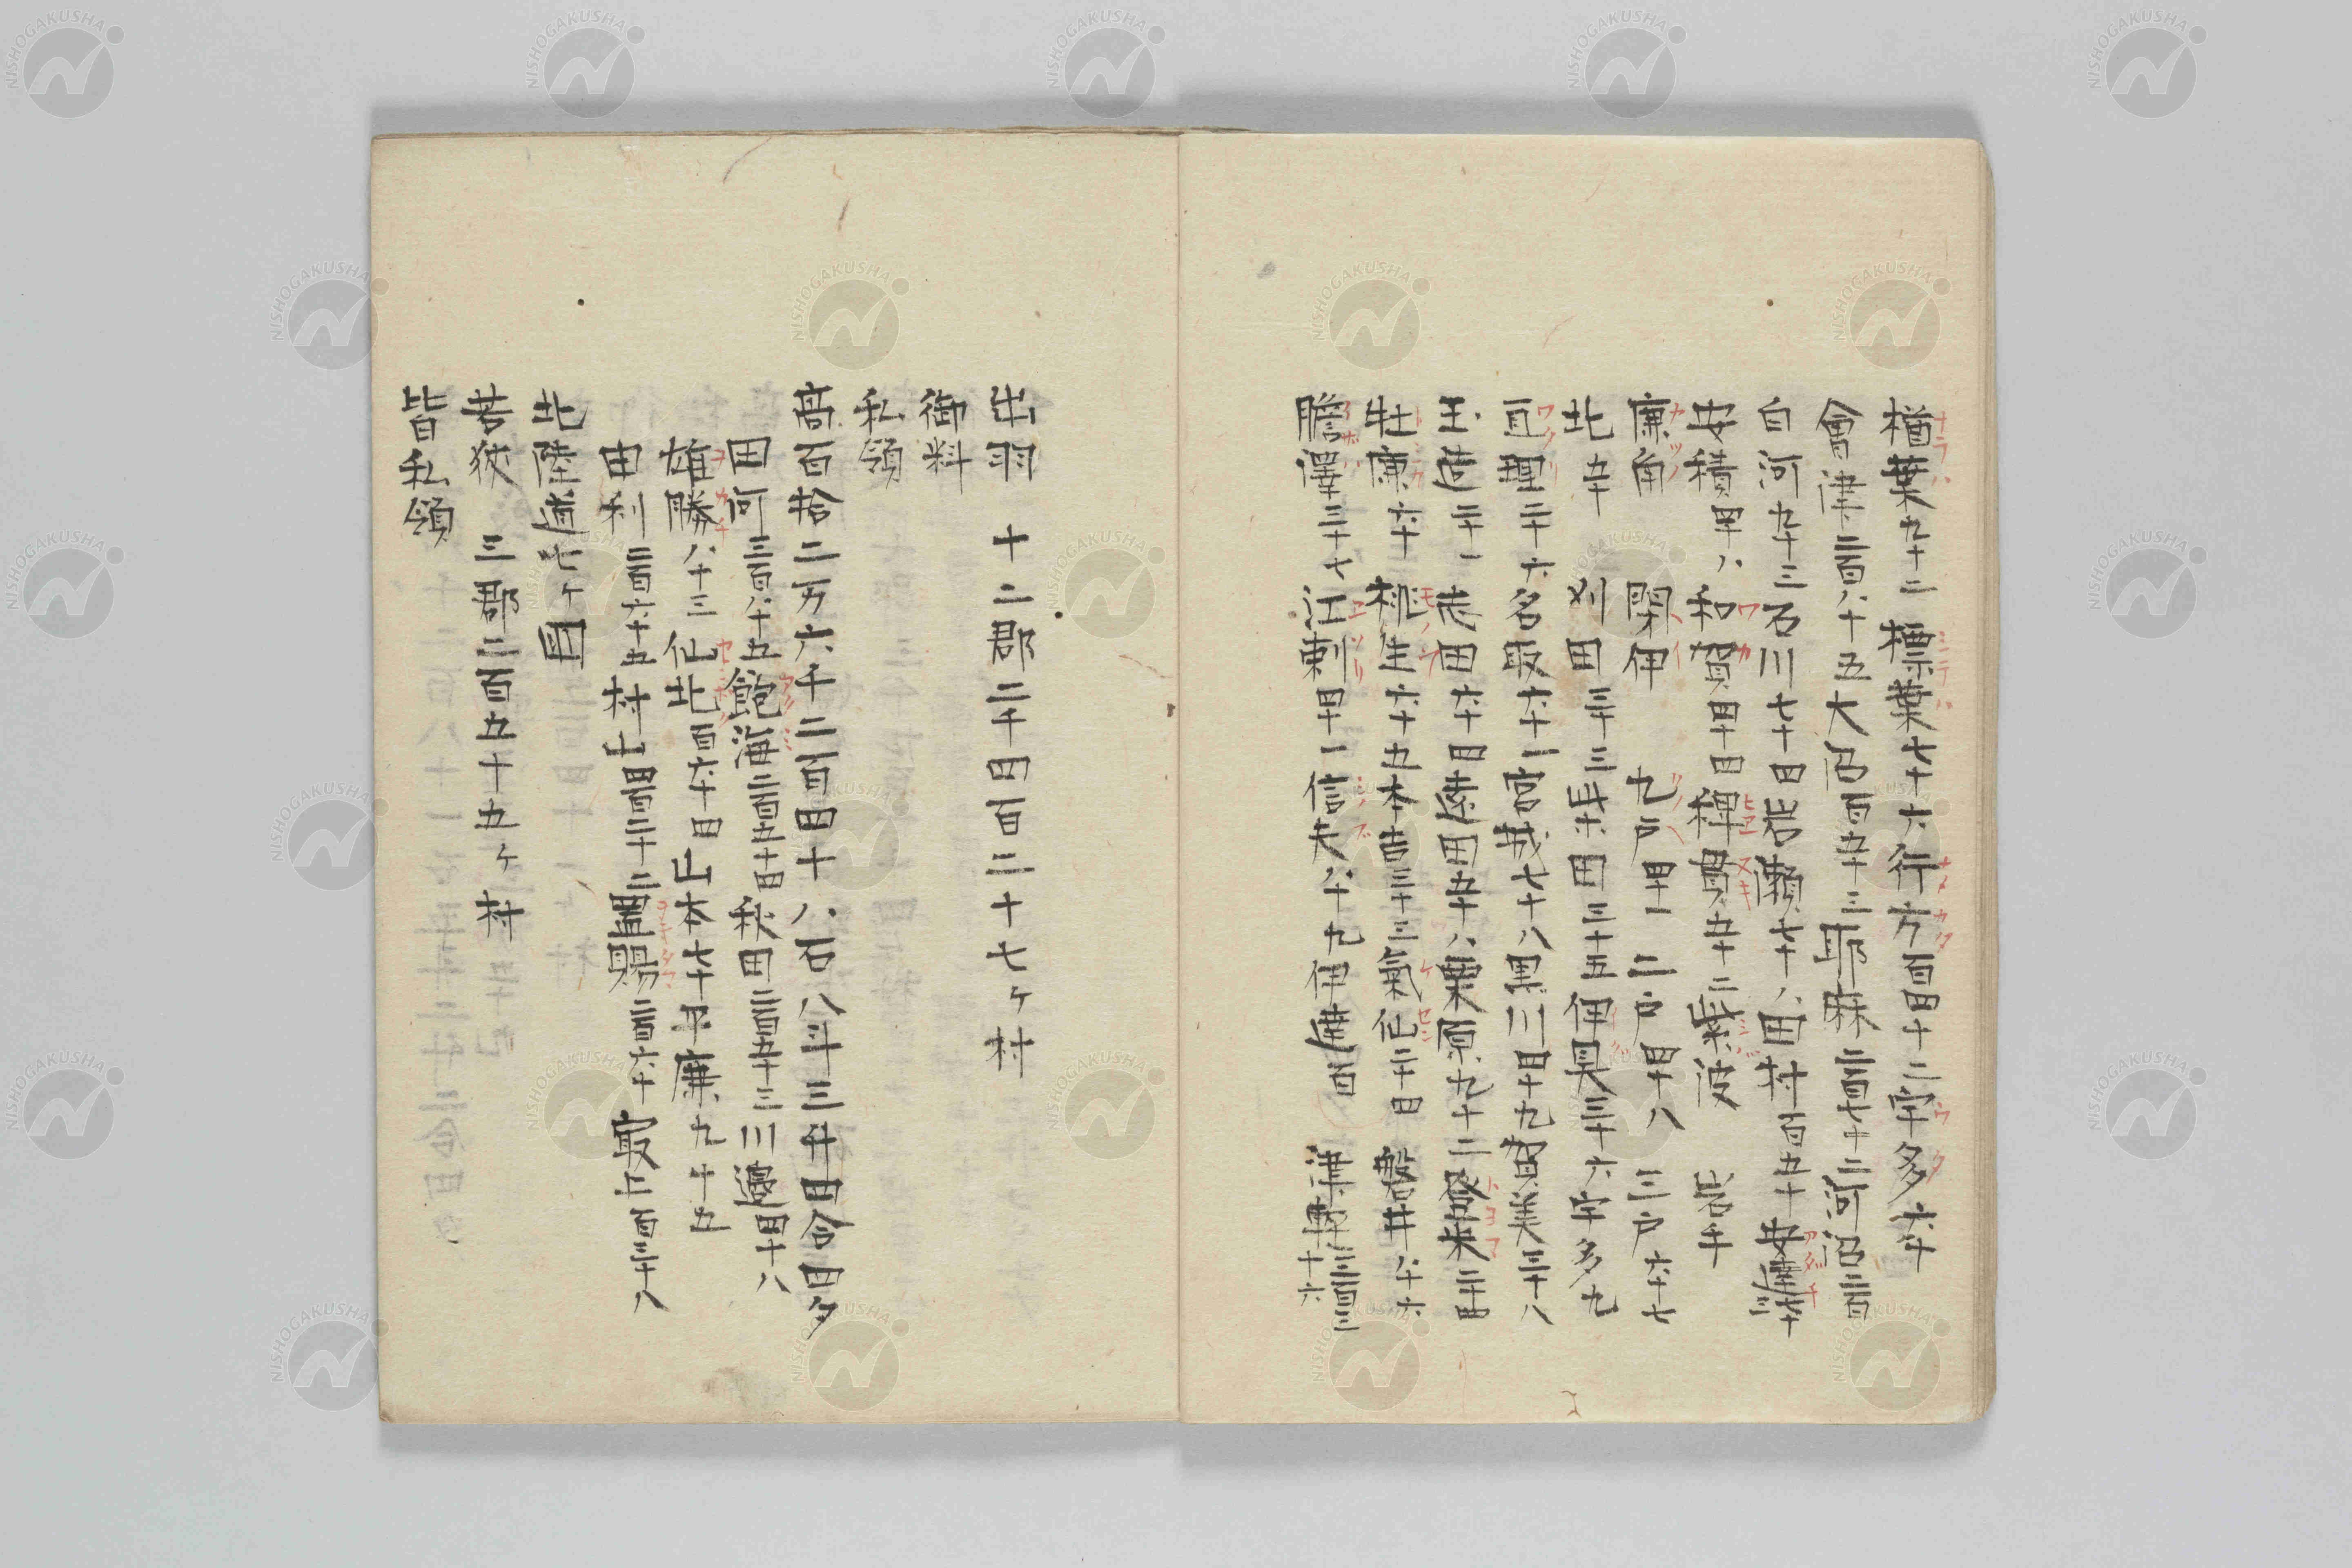 楢葉九十二 標葉七十六 行方百四十二 宇多六十
會津三百八十五 大沼百五十三 耶麻三百七十二 河沼三百
白河九十三 石川七十四 岩瀬七十八 田村百五十 安達六十三
安積四十八 和賀四十四 稗貫五十二 紫波 岩手
鹿角 閉伊 九戸四十一 二戸四十八 三戸六十七
北五十 刈田三十三 柴田三十五 伊具三十六 宇多九
亘理二十六 名取六十一 宮城七十八 黒川四十九 賀美三十八
玉造二十一 志田六十四 遠田五十八 栗原九十二 登米二十四
牡鹿六十 桃生六十五 本吉三十三 氣仙二十四 磐井八十六
膽澤三十七 江刺四十一 信夫八十九 伊達百 津軽三百三十六
出羽 十二郡二千四百三十七ヶ村
御料
私領
高百拾二万六千二百四十八石八斗三升四合四夕
田河三百八十五 飽海三百五十四 秋田三百五十三 川邊四十八
雄勝八十三 仙北百六十四 山本七十 平鹿九十五
由利三百六十五 村山四百三十二 置賜三百六十 最上百三十八
北陸道七ヶ国
若狭 三郡二百五十五ヶ村
皆私領